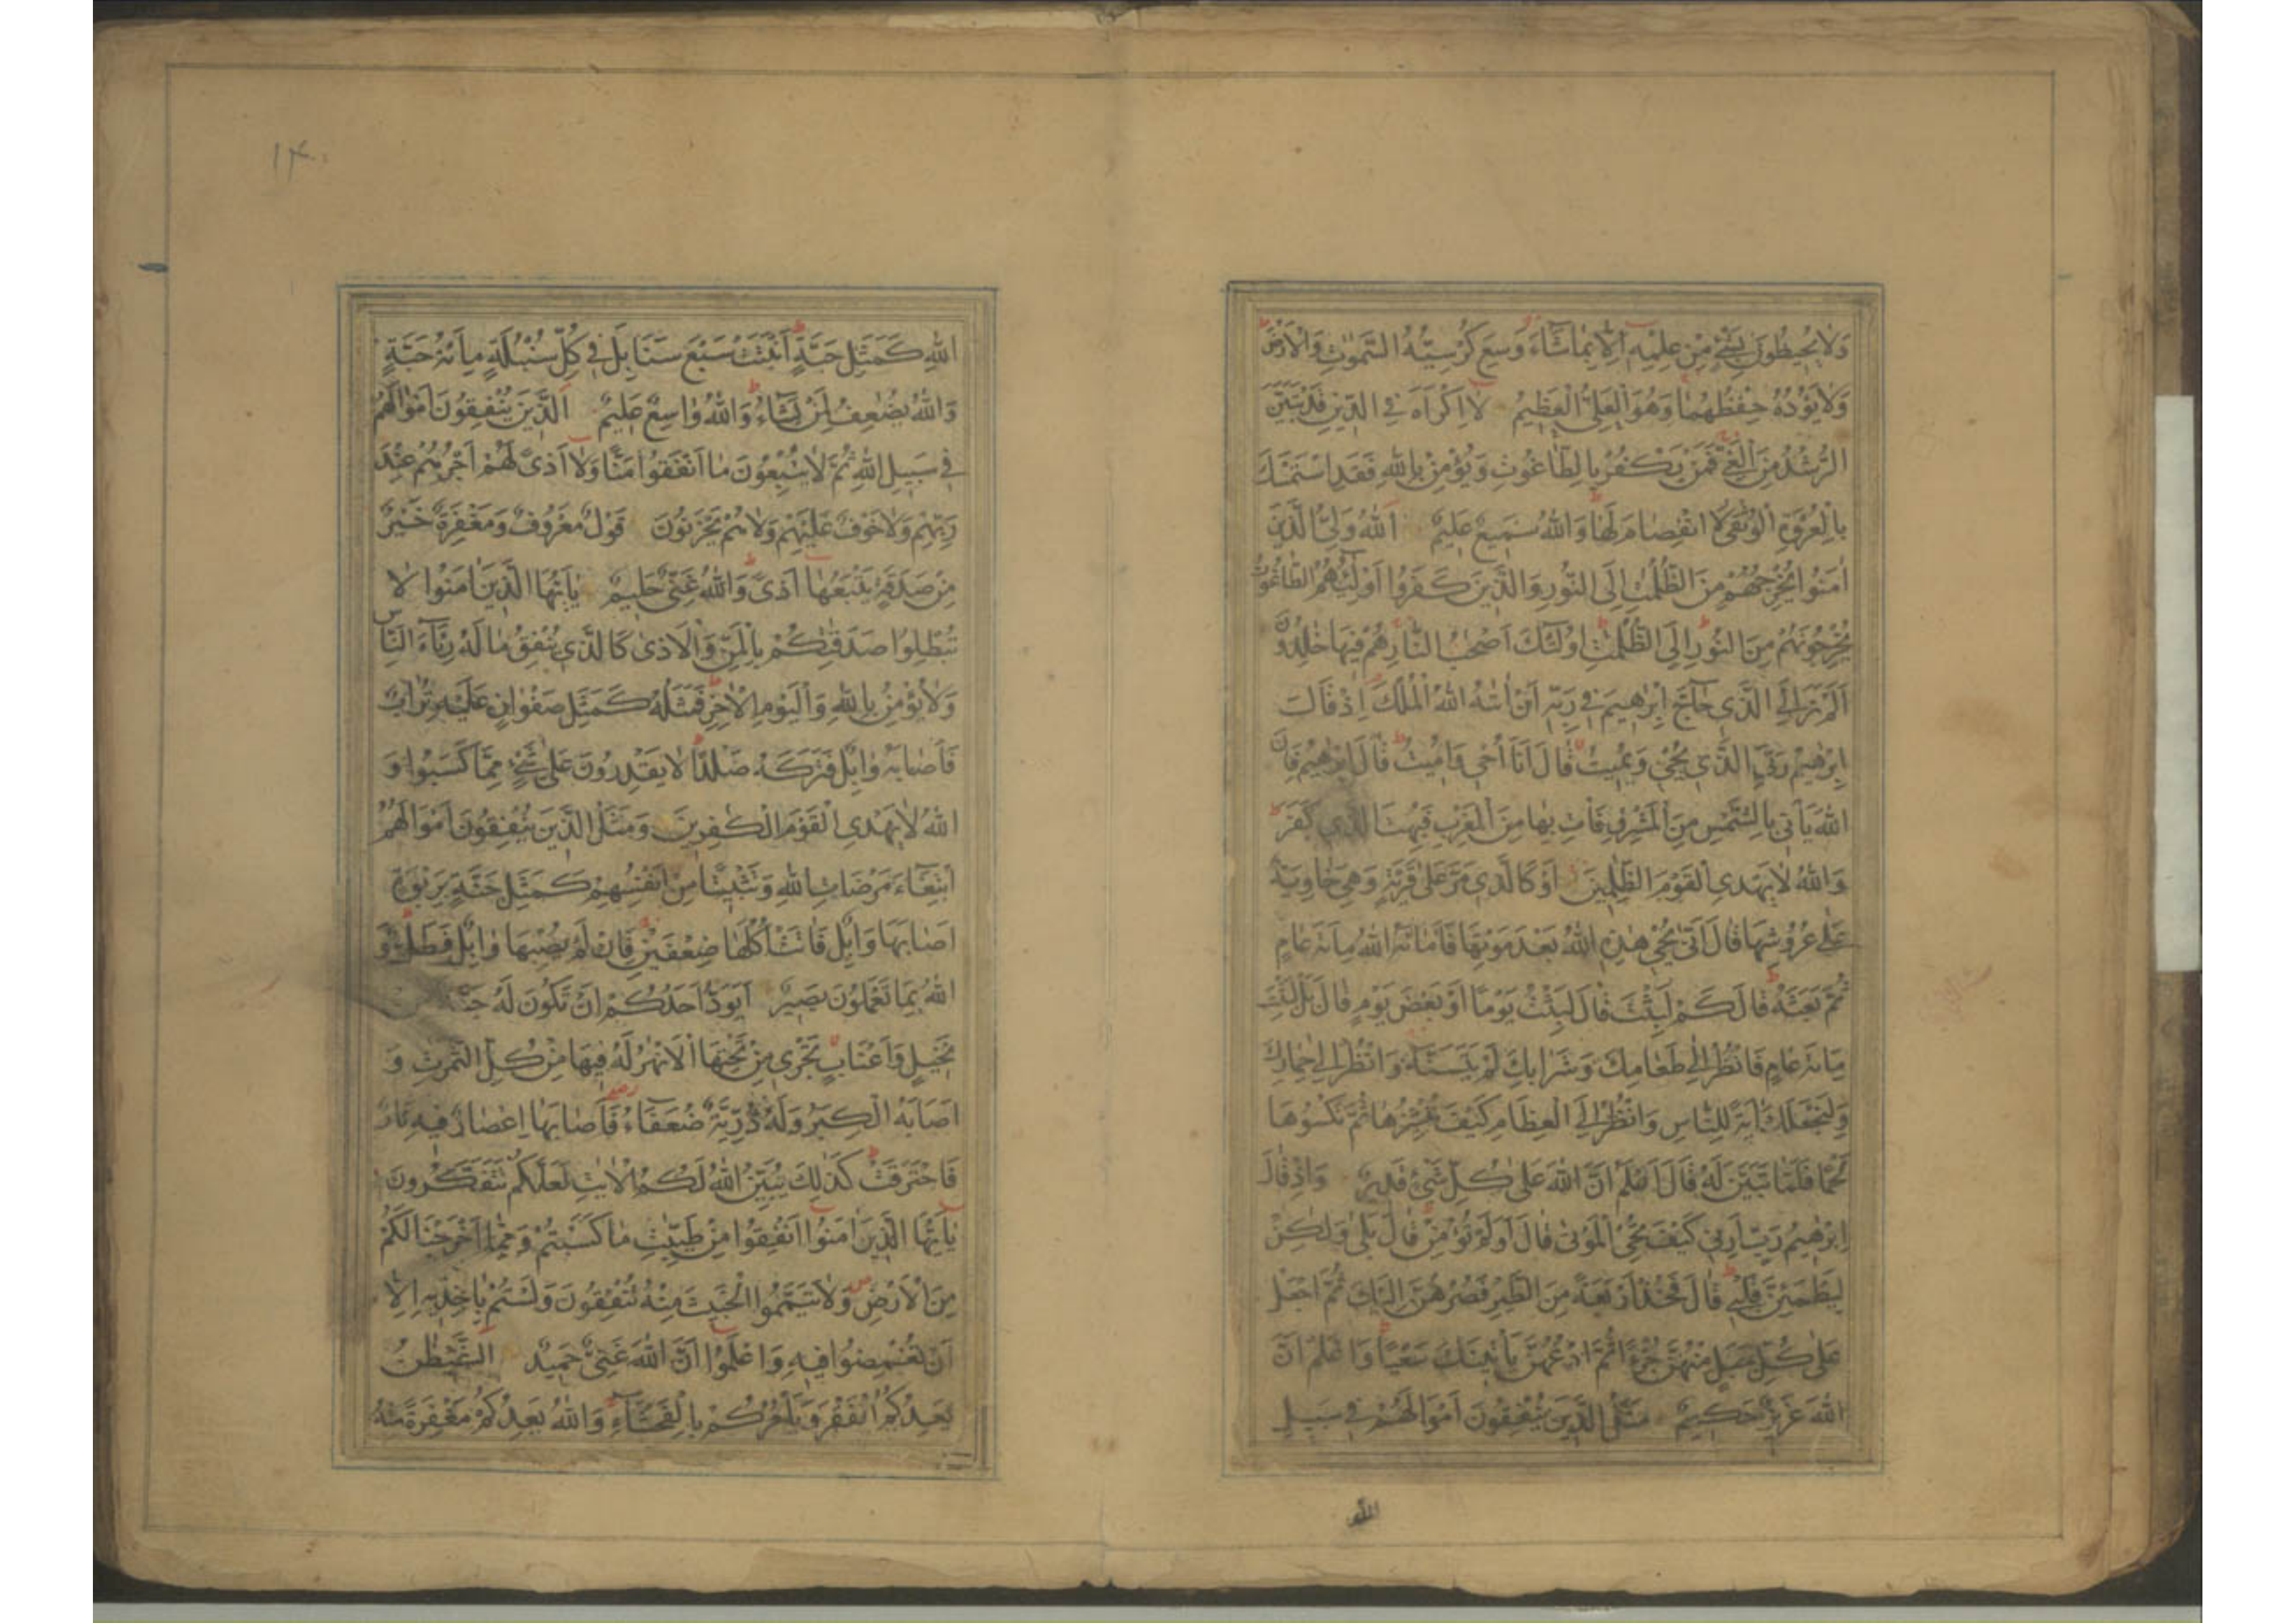 وَلَا يُحِيطُونَ بِشَيْءٍ مِنْ عِلْمِهِ إِلَّا بِمَا شَاءَ وَسِعَ كُرْسِيُّهُ السَّمٰوٰتِ وَالْأَرْضَ
وَلَا يَؤُدُهُ حِفْظُهُمَا وَهُوَ الْعَلِيُّ الْعَظِيمُ لَا إِكْرَاهَ فِي الدِّينِ قَدْ تَبَيَّنَ
الرُّشْدُ مِنَ الْغَيِّ فَمَنْ يَكْفُرْ بِالطَّاغُوتِ وَيُؤْمِنْ بِاللهِ فَقَدِ اسْتَمْسَكَ
بِالْعُرْوَةِ الْوُثْقَىٰ لَا انْفِصَامَ لَهَا وَاللهُ سَمِيعٌ عَلِيمٌ اَللهُ وَلِيُّ الَّذِينَ
اٰمَنُوا يُخْرِجُهُمْ مِنَ الظُّلُمٰتِ إِلَى النُّورِ وَالَّذِينَ كَفَرُوا أَوْلِيٰٓئُهُمُ الطَّاغُوتُ
يُخْرِجُونَهُمْ مِنَ النُّورِ إِلَى الظُّلُمٰتِ أُولٰٓئِكَ أَصْحٰبُ النَّارِ هُمْ فِيهَا خٰلِدُونَ
أَلَمْ تَرَ إِلَى الَّذِي حَاجَّ إِبْرٰهِيمَ فِي رَبِّهِ أَنْ اٰتٰهُ اللهُ الْمُلْكَ إِذْ قَالَ
إِبْرٰهِيمُ رَبِّيَ الَّذِي يُحْيِي وَيُمِيتُ قَالَ أَنَا أُحْيِي وَأُمِيتُ قَالَ إِبْرٰهِيمُ فَإِنَّ
اللهَ يَأْتِي بِالشَّمْسِ مِنَ الْمَشْرِقِ فَأْتِ بِهَا مِنَ الْمَغْرِبِ فَبُهِتَ الَّذِي كَفَرَ
وَاللهُ لَا يَهْدِي الْقَوْمَ الظّٰلِمِينَ أَوْ كَالَّذِي مَرَّ عَلَىٰ قَرْيَةٍ وَهِيَ خَاوِيَةٌ
عَلَىٰ عُرُوشِهَا قَالَ أَنَّىٰ يُحْيِي هٰذِهِ اللهُ بَعْدَ مَوْتِهَا فَأَمَاتَهُ اللهُ مِائَةَ عَامٍ
ثُمَّ بَعَثَهُ قَالَ كَمْ لَبِثْتَ قَالَ لَبِثْتُ يَوْمًا أَوْ بَعْضَ يَوْمٍ قَالَ بَلْ لَبِثْتَ
مِائَةَ عَامٍ فَانْظُرْ إِلَىٰ طَعَامِكَ وَشَرَابِكَ لَمْ يَتَسَنَّهْ وَانْظُرْ إِلَىٰ حِمَارِكَ
وَلِنَجْعَلَكَ اٰيَةً لِلنَّاسِ وَانْظُرْ إِلَى الْعِظَامِ كَيْفَ نُنْشِزُهَا ثُمَّ نَكْسُوهَا
لَحْمًا فَلَمَّا تَبَيَّنَ لَهُ قَالَ أَعْلَمُ أَنَّ اللهَ عَلَىٰ كُلِّ شَيْءٍ قَدِيرٌ وَإِذْ قَالَ
إِبْرٰهِيمُ رَبِّ أَرِنِي كَيْفَ تُحْيِي الْمَوْتَىٰ قَالَ أَوَلَمْ تُؤْمِنْ قَالَ بَلَىٰ وَلٰكِنْ
لِيَطْمَئِنَّ قَلْبِي قَالَ فَخُذْ أَرْبَعَةً مِنَ الطَّيْرِ فَصُرْهُنَّ إِلَيْكَ ثُمَّ اجْعَلْ
عَلَىٰ كُلِّ جَبَلٍ مِنْهُنَّ جُزْءًا ثُمَّ ادْعُهُنَّ يَأْتِينَكَ سَعْيًا وَاعْلَمْ أَنَّ
اللهَ عَزِيزٌ حَكِيمٌ مَثَلُ الَّذِينَ يُنْفِقُونَ أَمْوَالَهُمْ فِي سَبِيلِ
الله
١٤٠
اللهِ كَمَثَلِ حَبَّةٍ أَنْبَتَتْ سَبْعَ سَنَابِلَ فِي كُلِّ سُنْبُلَةٍ مِائَةُ حَبَّةٍ
وَاللهُ يُضٰعِفُ لِمَنْ يَشَاءُ وَاللهُ وَاسِعٌ عَلِيمٌ اَلَّذِينَ يُنْفِقُونَ أَمْوَالَهُمْ
فِي سَبِيلِ اللهِ ثُمَّ لَا يُتْبِعُونَ مَا أَنْفَقُوا مَنًّا وَلَا أَذًى لَهُمْ أَجْرُهُمْ عِنْدَ
رَبِّهِمْ وَلَا خَوْفٌ عَلَيْهِمْ وَلَا هُمْ يَحْزَنُونَ قَوْلٌ مَعْرُوفٌ وَمَغْفِرَةٌ خَيْرٌ
مِنْ صَدَقَةٍ يَتْبَعُهَا أَذًى وَاللهُ غَنِيٌّ حَلِيمٌ يٰأَيُّهَا الَّذِينَ اٰمَنُوا لَا
تُبْطِلُوا صَدَقٰتِكُمْ بِالْمَنِّ وَالْأَذَىٰ كَالَّذِي يُنْفِقُ مَالَهُ رِئَاءَ النَّاسِ
وَلَا يُؤْمِنُ بِاللهِ وَالْيَوْمِ الْاٰخِرِ فَمَثَلُهُ كَمَثَلِ صَفْوَانٍ عَلَيْهِ تُرَابٌ
فَأَصَابَهُ وَابِلٌ فَتَرَكَهُ صَلْدًا لَا يَقْدِرُونَ عَلَىٰ شَيْءٍ مِمَّا كَسَبُوا وَ
اللهُ لَا يَهْدِي الْقَوْمَ الْكٰفِرِينَ وَمَثَلُ الَّذِينَ يُنْفِقُونَ أَمْوَالَهُمُ
ابْتِغَاءَ مَرْضَاتِ اللهِ وَتَثْبِيتًا مِنْ أَنْفُسِهِمْ كَمَثَلِ جَنَّةٍ بِرَبْوَةٍ
أَصَابَهَا وَابِلٌ فَاٰتَتْ أُكُلَهَا ضِعْفَيْنِ فَإِنْ لَمْ يُصِبْهَا وَابِلٌ فَطَلٌّ وَ
اللهُ بِمَا تَعْمَلُونَ بَصِيرٌ أَيَوَدُّ أَحَدُكُمْ أَنْ تَكُونَ لَهُ جَنَّةٌ
نَخِيلٍ وَأَعْنَابٍ تَجْرِي مِنْ تَحْتِهَا الْأَنْهٰرُ لَهُ فِيهَا مِنْ كُلِّ الثَّمَرٰتِ وَ
أَصَابَهُ الْكِبَرُ وَلَهُ ذُرِّيَّةٌ ضُعَفَاءُ فَأَصَابَهَا إِعْصَارٌ فِيهِ نَارٌ
فَاحْتَرَقَتْ كَذٰلِكَ يُبَيِّنُ اللهُ لَكُمُ الْاٰيٰتِ لَعَلَّكُمْ تَتَفَكَّرُونَ
يٰأَيُّهَا الَّذِينَ اٰمَنُوا أَنْفِقُوا مِنْ طَيِّبٰتِ مَا كَسَبْتُمْ وَمِمَّا أَخْرَجْنَا لَكُمْ
مِنَ الْأَرْضِ وَلَا تَيَمَّمُوا الْخَبِيثَ مِنْهُ تُنْفِقُونَ وَلَسْتُمْ بِاٰخِذِيهِ إِلَّا
أَنْ تُغْمِضُوا فِيهِ وَاعْلَمُوا أَنَّ اللهَ غَنِيٌّ حَمِيدٌ الشَّيْطٰنُ
يَعِدُكُمُ الْفَقْرَ وَيَأْمُرُكُمْ بِالْفَحْشَاءِ وَاللهُ يَعِدُكُمْ مَغْفِرَةً مِنْهُ